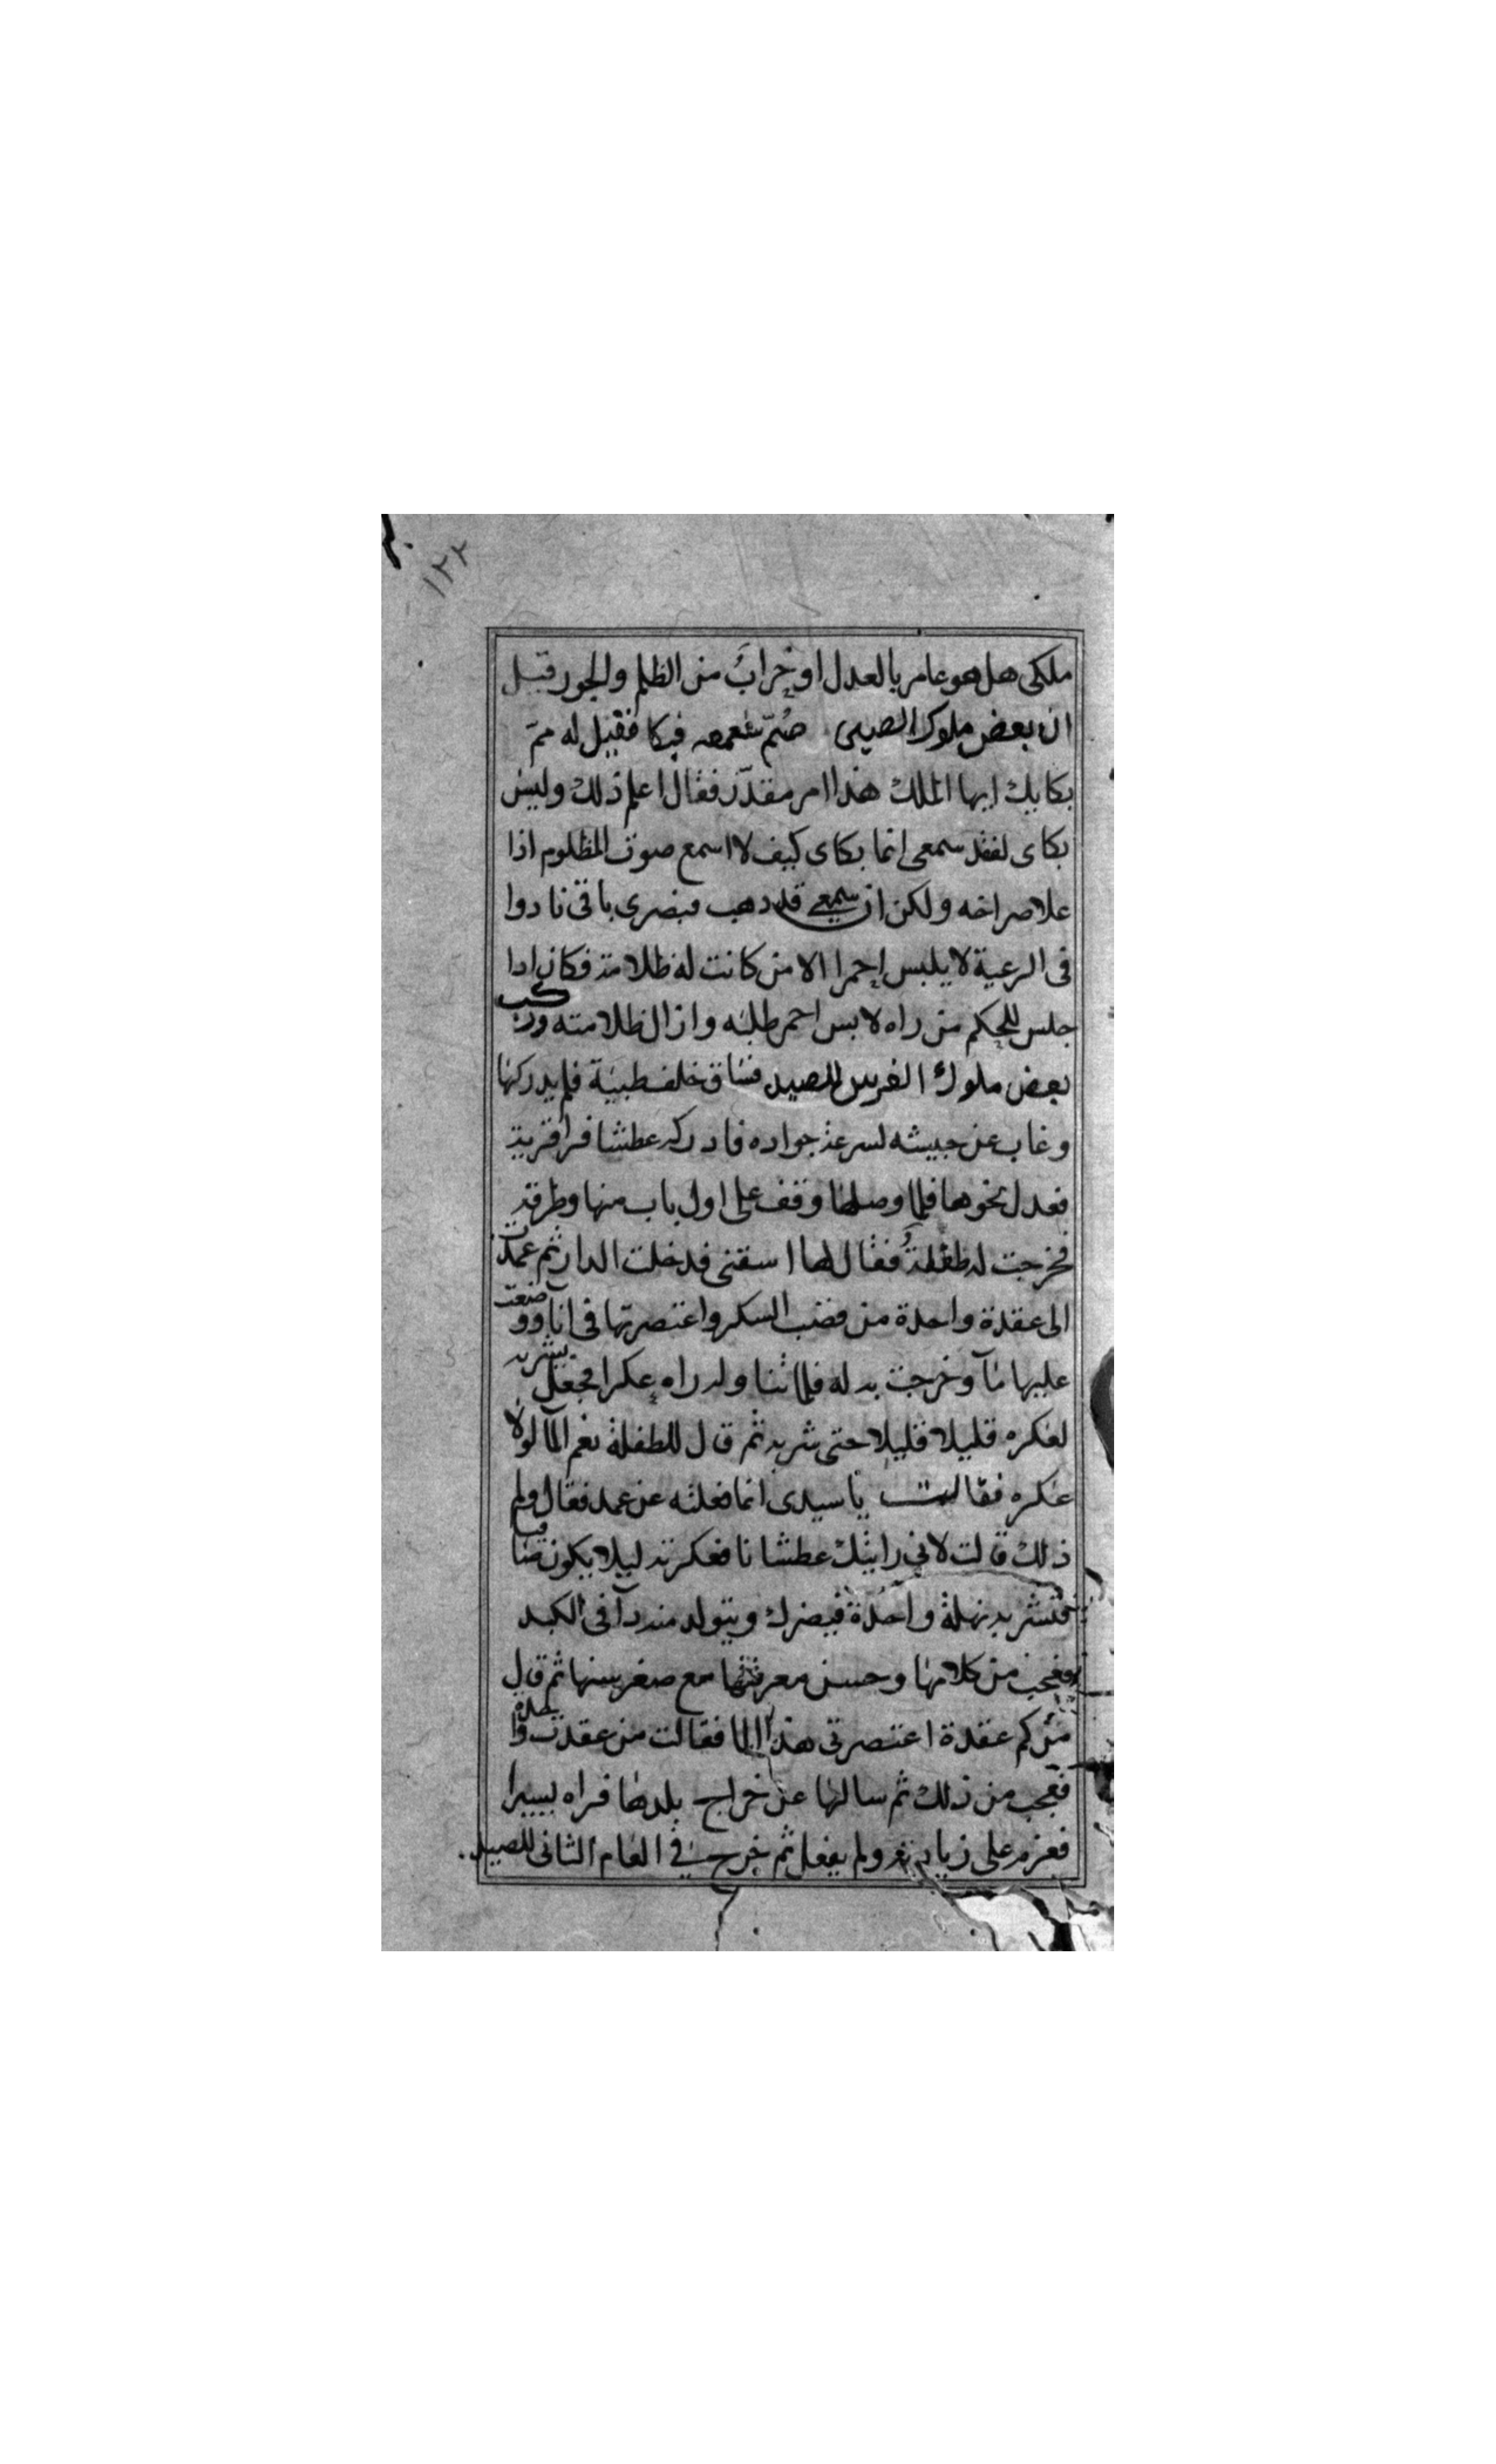 ١٢٢
ملكى هل هو عامر بالعدل او خراب من الظلم والجور قبل
ان بعض ملوك الصين صُمّ سمعه فبكا فقيل له ممّ
بكايك ايها الملك هذا امر مقدّر فقال اعلم ذلك وليس
بكاى لفقد سمعى انما بكاى كيف لا اسمع صوت المظلوم اذا
علا صراخه ولكن ان سمعى قد ذهب فبصرى باقى نادوا
فى الرعية لا يلبس احمرا الا من كانت له ظلامة فكان اذا
جلس للحكم من راه لابس احمر طلبه وازال ظلامته وركب
بعض ملوك الفرس للصيد فساق خلف ظبية فلم يدركها
وغاب عن جيشه لسرعة جواده فادركه عطشا فرا قرية
فعدل نحوها فلما وصلها وقف على اول باب منها وطرقه
فخرجت له طفلة فقال لها اسقنى فدخلت الدار ثم عمدت
الى عقدة واحدة من قضب السكر واعتصرتها فى انآ ووضعت
عليها مآ وخرجت به له فلما تناوله راه عكرا فجعل يشربه
لعكره قليلا قليلا حتى شربه ثم قال للطفلة نعم المآ لولا
عكره فقالت يا سيدى انما فعلته عن عمد فقال ولم
ذلك قالت لانى رايتك عطشانا فعكرته ليلا يكون صافيا
فتشربه نهلة واحدة فيضرك ويتولد منه دآ فى الكبد
فعجب من كلامها وحسن معرفتها مع صغر سنها ثم قال
من كم عقدة اعتصرتى هذا الما فقالت من عقدت واحده
فعجب من ذلك ثم سالها عن خراج بلدها فراه يسيرا
فعزم على زيادته ولم يفعل ثم خرج فى العام الثانى للصيد